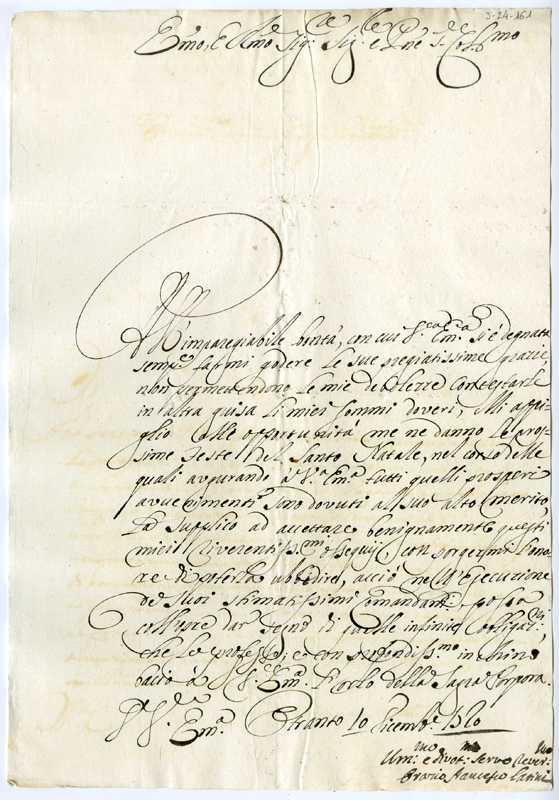 3-24-161
Em̃o, e Rmo Sig:re Sig:r e Pñe Col:mo
All'impareggiabile bontà, con cui V.ra Em.a si è degnata
sempre farmi godere le sue pregiatissime grazie,
non permettendone le mie debolezze contestarle
in altra guisa li miei sommi doveri, Mi appi-
glio alle opportunità me ne danno le pros-
sime feste del Santo Natale, nel corso delle
quali augurando à V.a Em.a tutti quelli prosperi
avvenimenti sono dovuti al suo alto merito
La supplico ad accettare benignamente questi
miei riverentiss.mi ossequij, con porgermi l'ono-
re di poterla ubbidire, acciò nell'esecuzione
de suoi stimatissimi comandanti, possa
coll'opre dar segno di quelle infinite obligaz:ni,
che le professo; e con profondiss.mo inchino
bacio à V. Em.a l'orlo della Sacra Porpora.
D. V. Em.a Otranto 10 Dicemb.e
Um:mo e divot:mo servo river:mo
Orazio Francesco